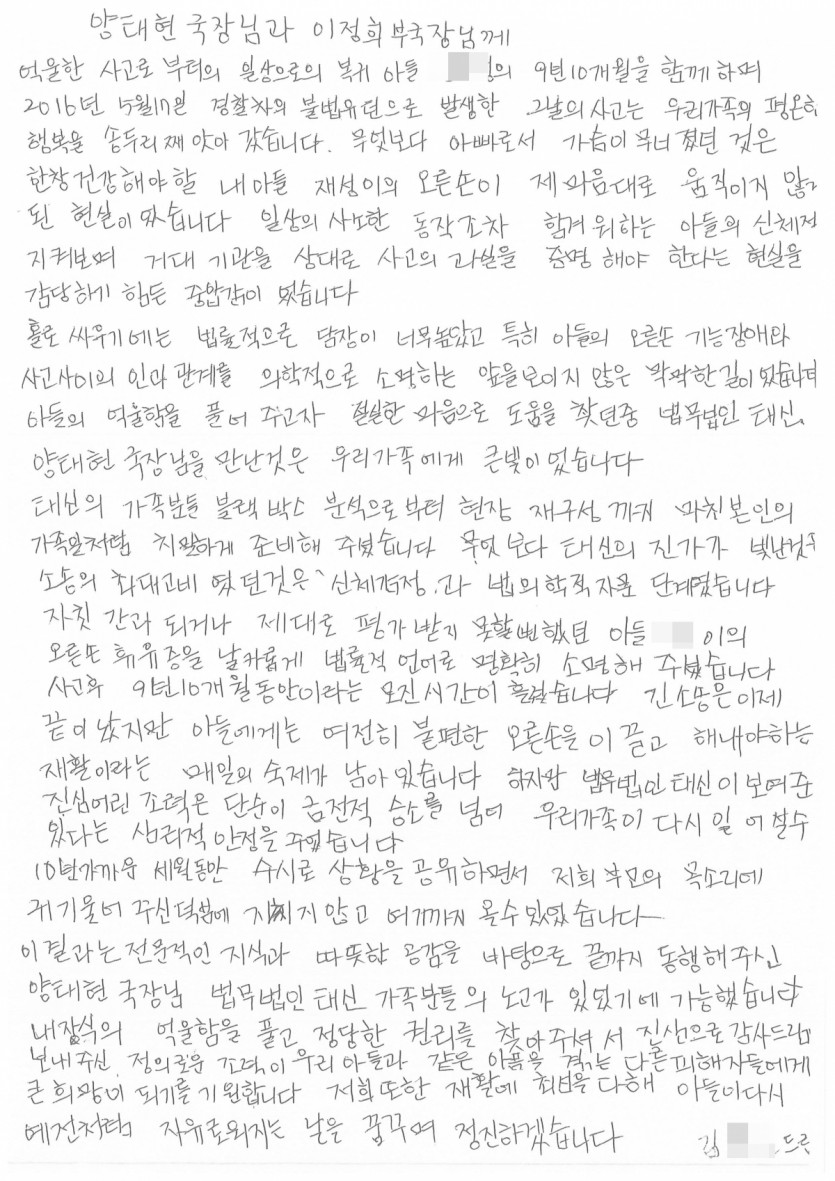 양태현 국장님과 이정희 부국장님께
억울한 사고로 부터의 일상으로의 복귀 아들 의 9년10개월을 함께 하며
2016년 5월17일 경찰차의 불법유턴으로 발생한 그날의 사고는 우리가족의 평온하
행복을 송두리째 앗아 갔습니다. 무엇보다 아빠로서 가슴이 무너졌던 것은
한창 건강해야 할 내아들 재성이의 오른손이 제 마음대로 움직이지 않게
된 현실이었습니다 일상의 사소한 동작조차 힘겨워하는 아들의 신체적
지켜보며 거대 기관을 상대로 사고의 과실을 증명 해야 한다는 현실을
감당하기 힘든 중압감이 었습니다
홀로 싸우기에는 법률적으로 담장이 너무높았고 특히 아들의 오른손 기능장애와
사고사이의 인과관계를 의학적으로 소명하는 앞을보이지 않은 막막한길이었습니다
아들의 억울함을 풀어 주고자 절실한 마음으로 도움을 찾던중 법무법인 태신
양태현 국장님을 만난것은 우리가족에게 큰빛이었습니다
태신의 가족분들 블랙박스 분석으로부터 현장 재구성 까지 마치본인의
가족일처럼 치밀하게 준비해 주셨습니다 무엇 보다 태신의 진가가 빛난것은
소송의 최대고비 였던것은 '신체감정'과 법의학적 자문 단계였습니다
자칫 간과 되거나 제대로 평가받지 못할뻔했던 아들 이의
오른손 휴유증을 날카롭게 법률적 언어로 명확히 소명해 주셨습니다
사고후 9년10개월동안이라는 모진시간이 흘렀습니다 긴소송은이제
끝이 났지만 아들에게는 여전히 불편한 오른손을 이끌고 해내야하는
재활이라는 매일의 숙제가 남아있습니다 하지만 법무법인태신이 보여준
진심어린 조력은 단순이 금전적 승소를 넘어 우리가족이 다시 일어설수
있다는 심리적 안정을 주었습니다
10년가까운 세월동안 수시로 상황을 공유하면서 저희 부모의 목소리에
귀기울여 주신덕분에 지치지 않고 여기까지 올수있었습니다
이결과는 전문적인 지식과 따뜻한 공감을 바탕으로 끝까지 동행해주신
양태현 국장님 법무법인태신 가족분들의 노고가 있었기에 가능했습니다
내자식의 억울함을 풀고 정당한 권리를 찾아주셔서 진심으로 감사드리며
보내주신 정의로운 조력이 우리 아들과 같은 아픔을 겪는 다른피해자들에게
큰 희망이 되기를 기원합니다 저희또한 재활에 최선을 다해 아들이다시
예전처럼 자유로워지는 날을 꿈꾸며 정진하겠습니다 김 드림